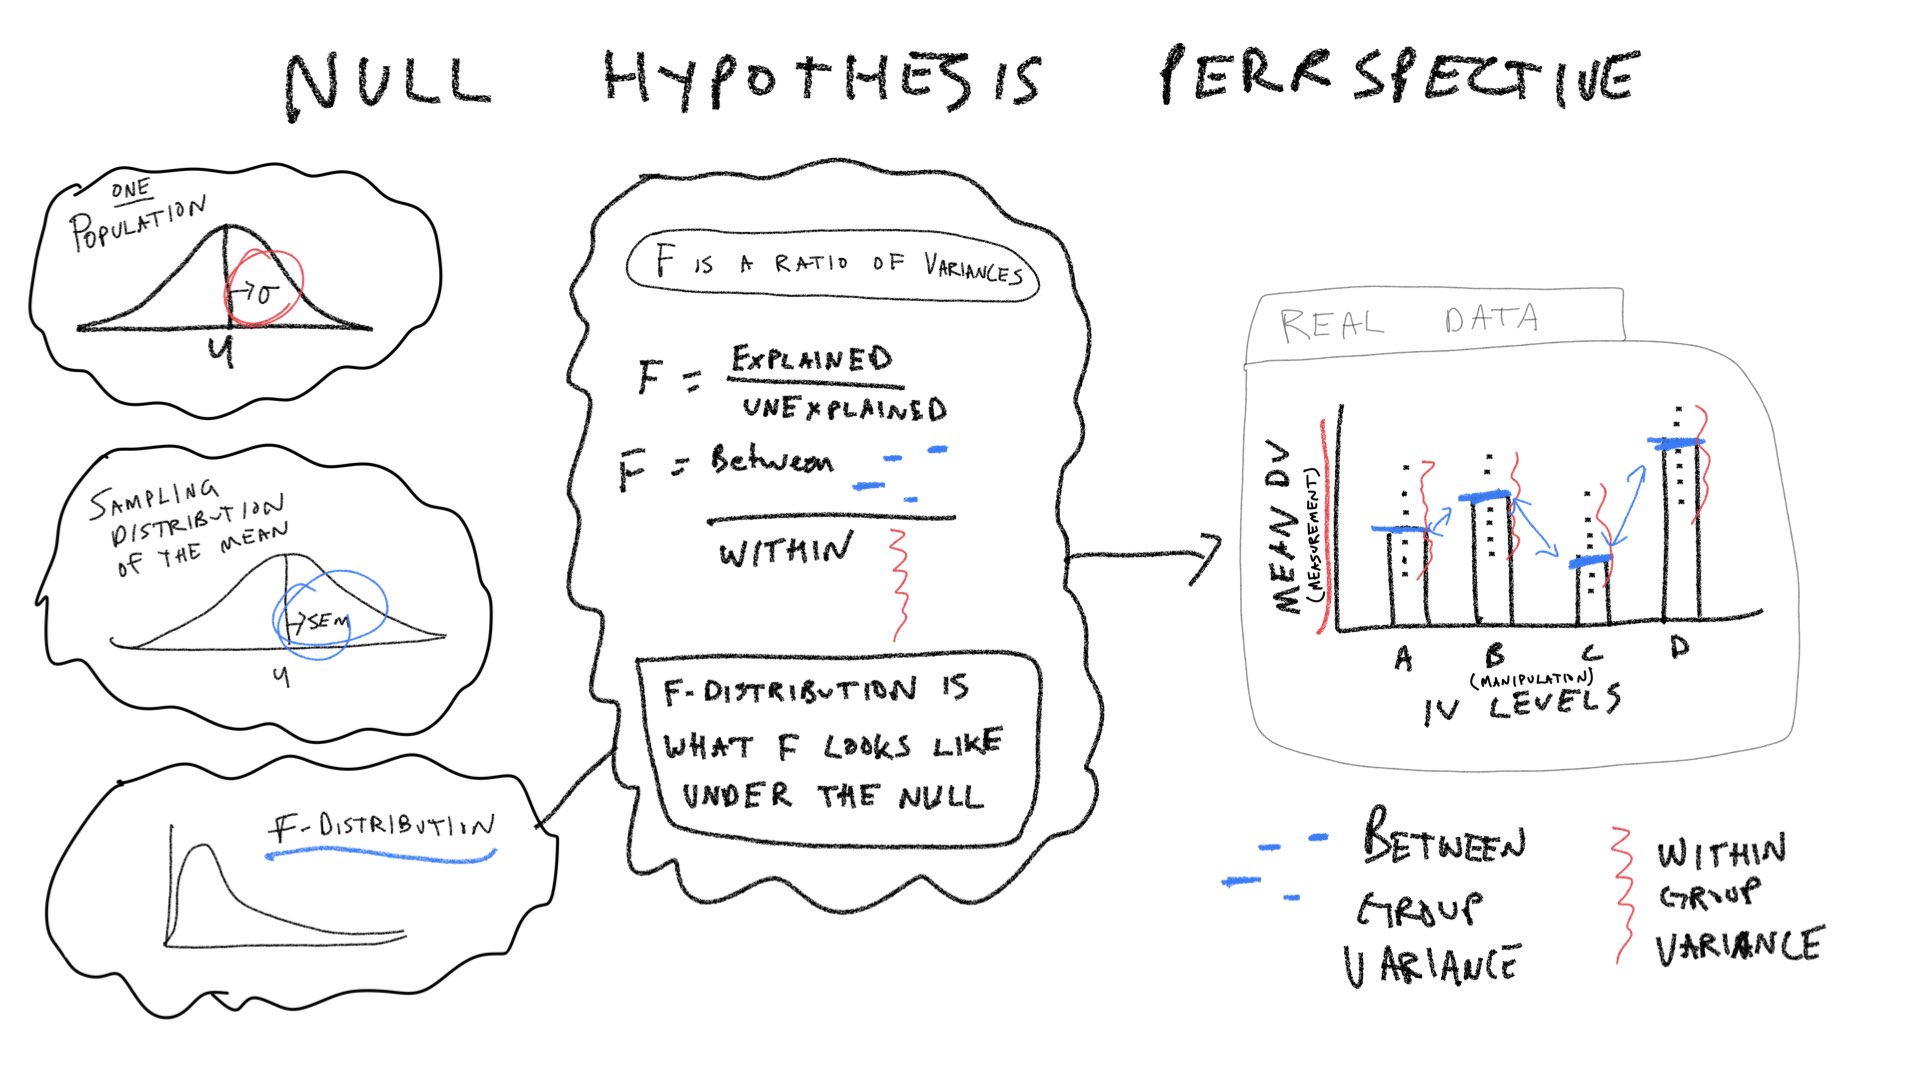 NULL HYPOTHESIS PERRSPECTIVE
ONE
POPULATION
→σ
u
SAMPLING
DISTRIBUTION
OF THE MEAN
→SEM
u
F-DISTRIBUTION
F IS A RATIO OF VARIANCES
F = EXPLAINED
UNEXPLAINED
F = Between
WITHIN
F-DISTRIBUTION IS
WHAT F LOOKS LIKE
UNDER THE NULL
REAL DATA
MEAN DV
(MEASUREMENT)
A B C D
(MANIPULATION)
IV LEVELS
BETWEEN
GROUP
VARIANCE
WITHIN
GROUP
VARIANCE